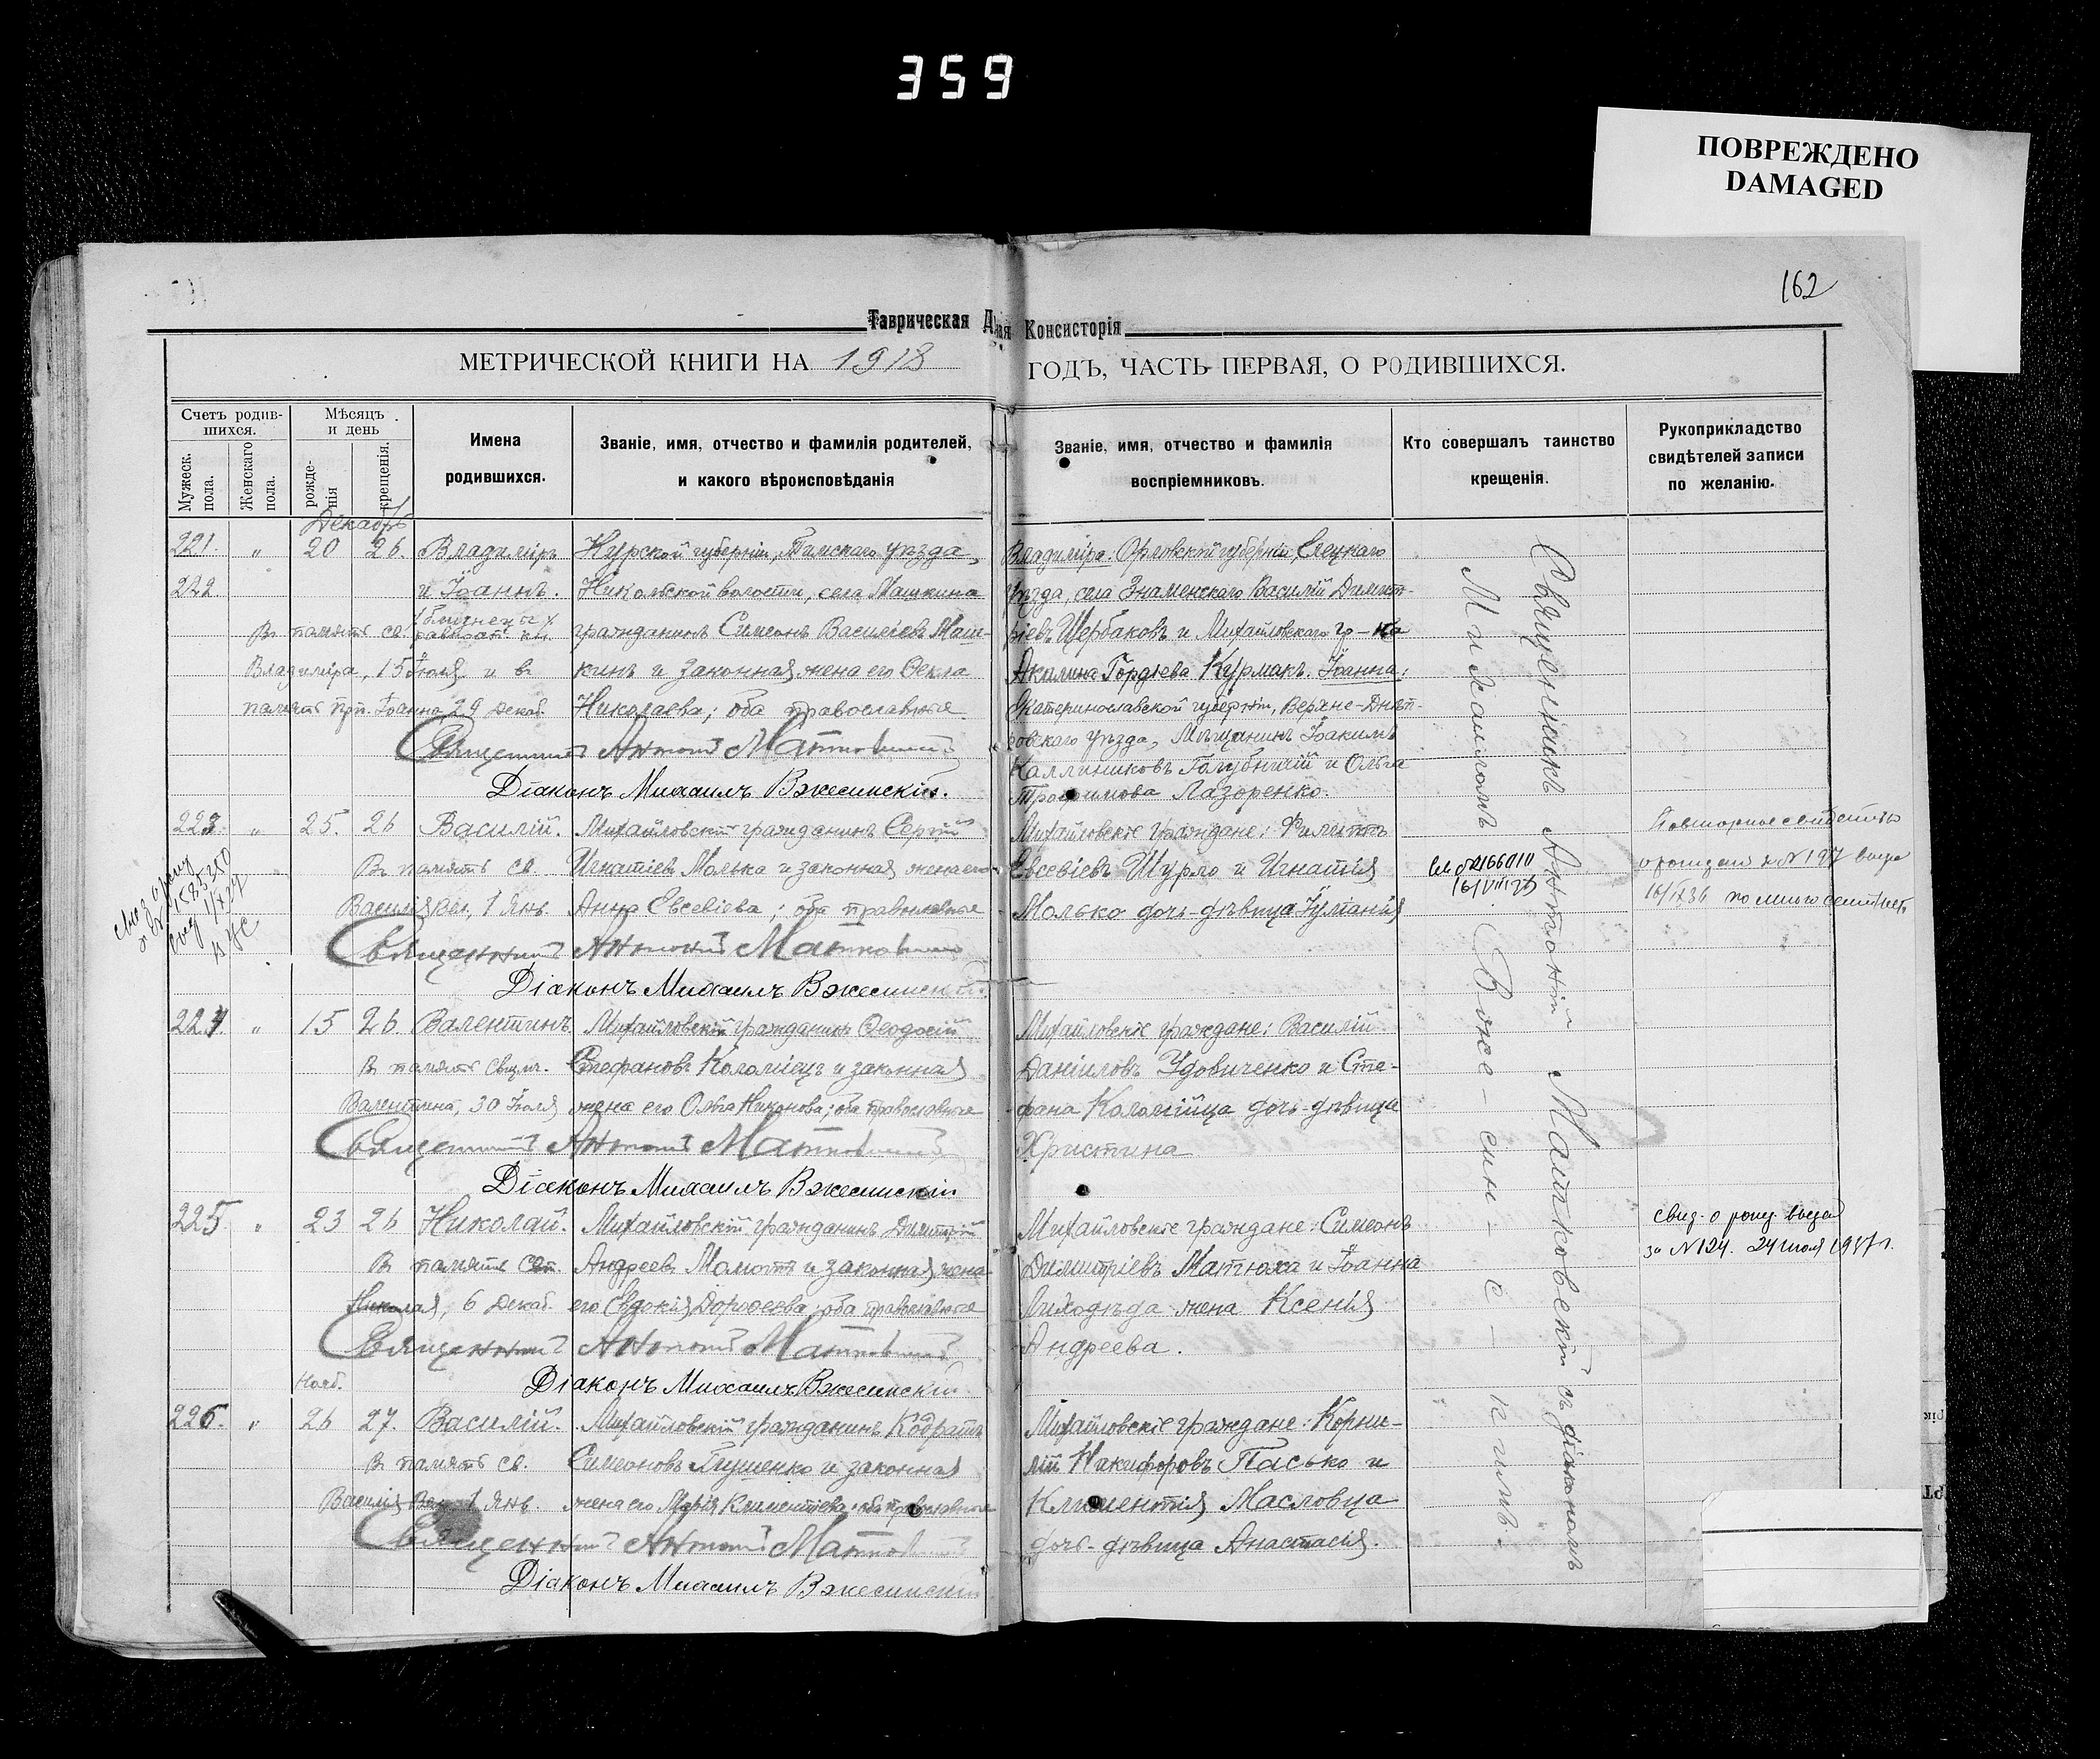 359
ПОВРЕЖДЕНО
DAMAGED
162
Таврическая Д
ая Консисторія
МЕТРИЧЕСКОЙ КНИГИ НА 1918
ГОДЪ, ЧАСТЬ ПЕРВАЯ, О РОДИВШИХСЯ.
Счетъ родив-
шихся.
Мужеск.
пола.
Женскаго
пола.
Мѣсяцъ
и день
рожде-
нія
крещенія.
Имена
родившихся.
Званіе, имя, отчество и фамилія родителей,
и какого вѣроисповѣданія
Званіе, имя, отчество и фамилія
воспріемниковъ.
Кто совершалъ таинство
крещенія.
Рукоприкладство
свидѣтелей записи
по желанію.
Декабрь
221. „ 20 26. Владиміръ
222 и Іоаннъ.
близнецы
Въ память св. равноап. кн.
Владиміра, 15 Іюля и въ
память прп. Іоанна 29 Декаб.
Курской губерніи, Тимскаго уѣзда,
Никольской волости, села Машкина
гражданинъ Симеонъ Василіевъ Маш-
кинъ и законная жена его Ѳекла
Николаева; оба православные
Священникъ Антоній Матковскій
Діаконъ Михаилъ Вжесинскій.
Владиміра: Орловской губерніи, Елецкаго
уѣзда, села Знаменскаго Василій Димит-
ріевъ Щербаковъ и Михайловскаго гр-на
Акилина Гордѣева Курмакъ. Іоанна:
Екатеринославской губерніи, Верхне-Днѣп-
ровскаго уѣзда, Мѣщанинъ Іоакимъ
Каллиниковъ Голубничій и Ольга
Трофимова Лазоренко.
223. „ 25. 26 Василій.
Въ память св.
Василія Вел., 1 Янв.
Михайловскій гражданинъ Сергій
Игнатіевъ Молька и законная жена его
Анна Евсевіева; оба православные
Священникъ Антоній Матковскій
Діаконъ Михаилъ Вжесинскій.
Михайловскіе граждане: Филиппъ
Евсевіевъ Шурло и Игнатія
Молько дочь-дѣвица Іуліанія
224. „ 15 26 Валентинъ
Въ память свщмч.
Валентина, 30 Іюля
Михайловскій гражданинъ Ѳеодосій
Стефановъ Коломіецъ и законная
жена его Ольга Никонова; оба православные
Священникъ Антоній Матковскій
Діаконъ Михаилъ Вжесинскій
Михайловскіе граждане: Василій
Даніиловъ Удовиченко и Сте-
фана Коломійца дочь-дѣвица
Христина
225. „ 23 26 Николай.
Въ память свт.
Николая, 6 Декаб.
Михайловскій гражданинъ Димитрій
Андреевъ Момотъ и законная жена
его Евдокія Дороѳеева; оба православные
Священникъ Антоній Матковскій
Діаконъ Михаилъ Вжесинскій
Михайловскіе граждане: Симеонъ
Димитріевъ Матюха и Іоанна
Лиходѣда жена Ксенія
Андреева.
свид. о рожд. выдан
за № 124. 24 июля 1957 г.
Нояб.
226. „ 26 27. Василій.
Въ память св.
Василія Вел. 1 Янв.
Михайловскій гражданинъ Кодратъ
Симеоновъ Глущенко и законная
жена его Марія Климентіева; оба православные
Священникъ Антоній Матковскій
Діаконъ Михаилъ Вжесинскій
Михайловскіе граждане: Корни-
лій Никифоровъ Пасько и
Климентія Масловца
дочь-дѣвица Анастасія.
Священникъ Антоній Матковскій съ діакономъ
Михаиломъ Вже-син-с-кимъ.